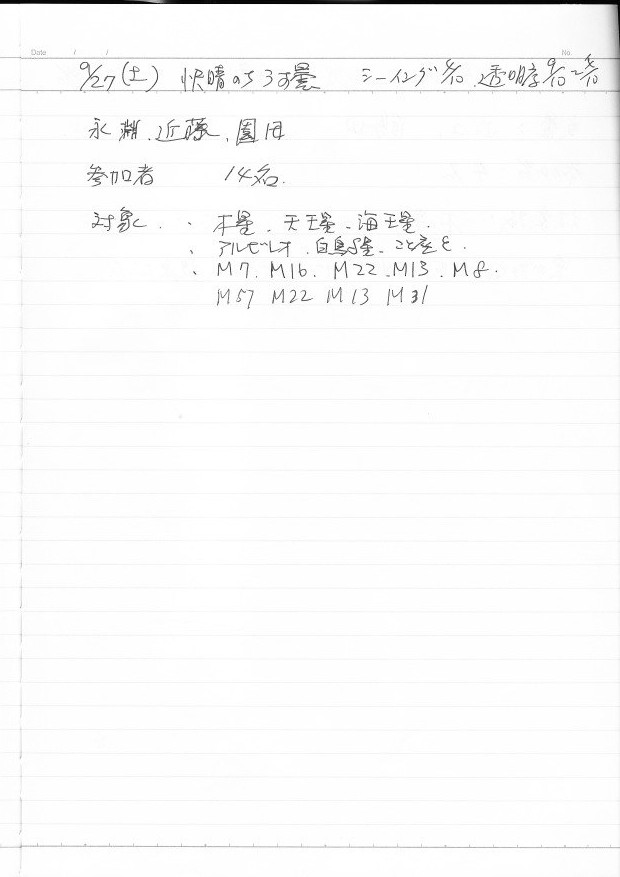 Date / / No.
9/27(土) 快晴のちうす曇 シーイング4/10、透明度9/10〜
永淵、近藤、園田
参加者 14名.
対象. ・ 木星、天王星、海王星.
、アルビレオ、白鳥 星、こと座ε.
・M7. M16. M22. M13. M8.
M57 M22 M13 M31